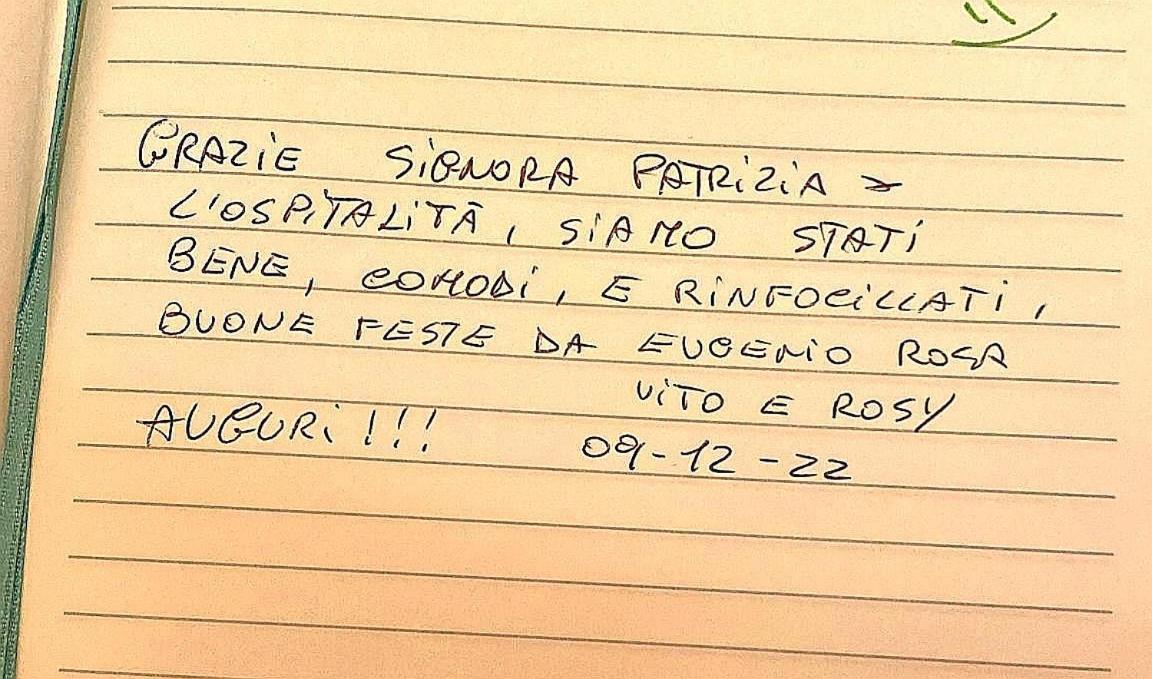 GRAZIE SiGNORA PATRiZiA
L'OSPiTALiTÀ, SiAMO STATi
BENE, COMODi, E RiNFOCiLLATi,
BUONE FESTE DA EUGENiO ROSA
ViTO E ROSY
AUGURi!!! 09-12-22